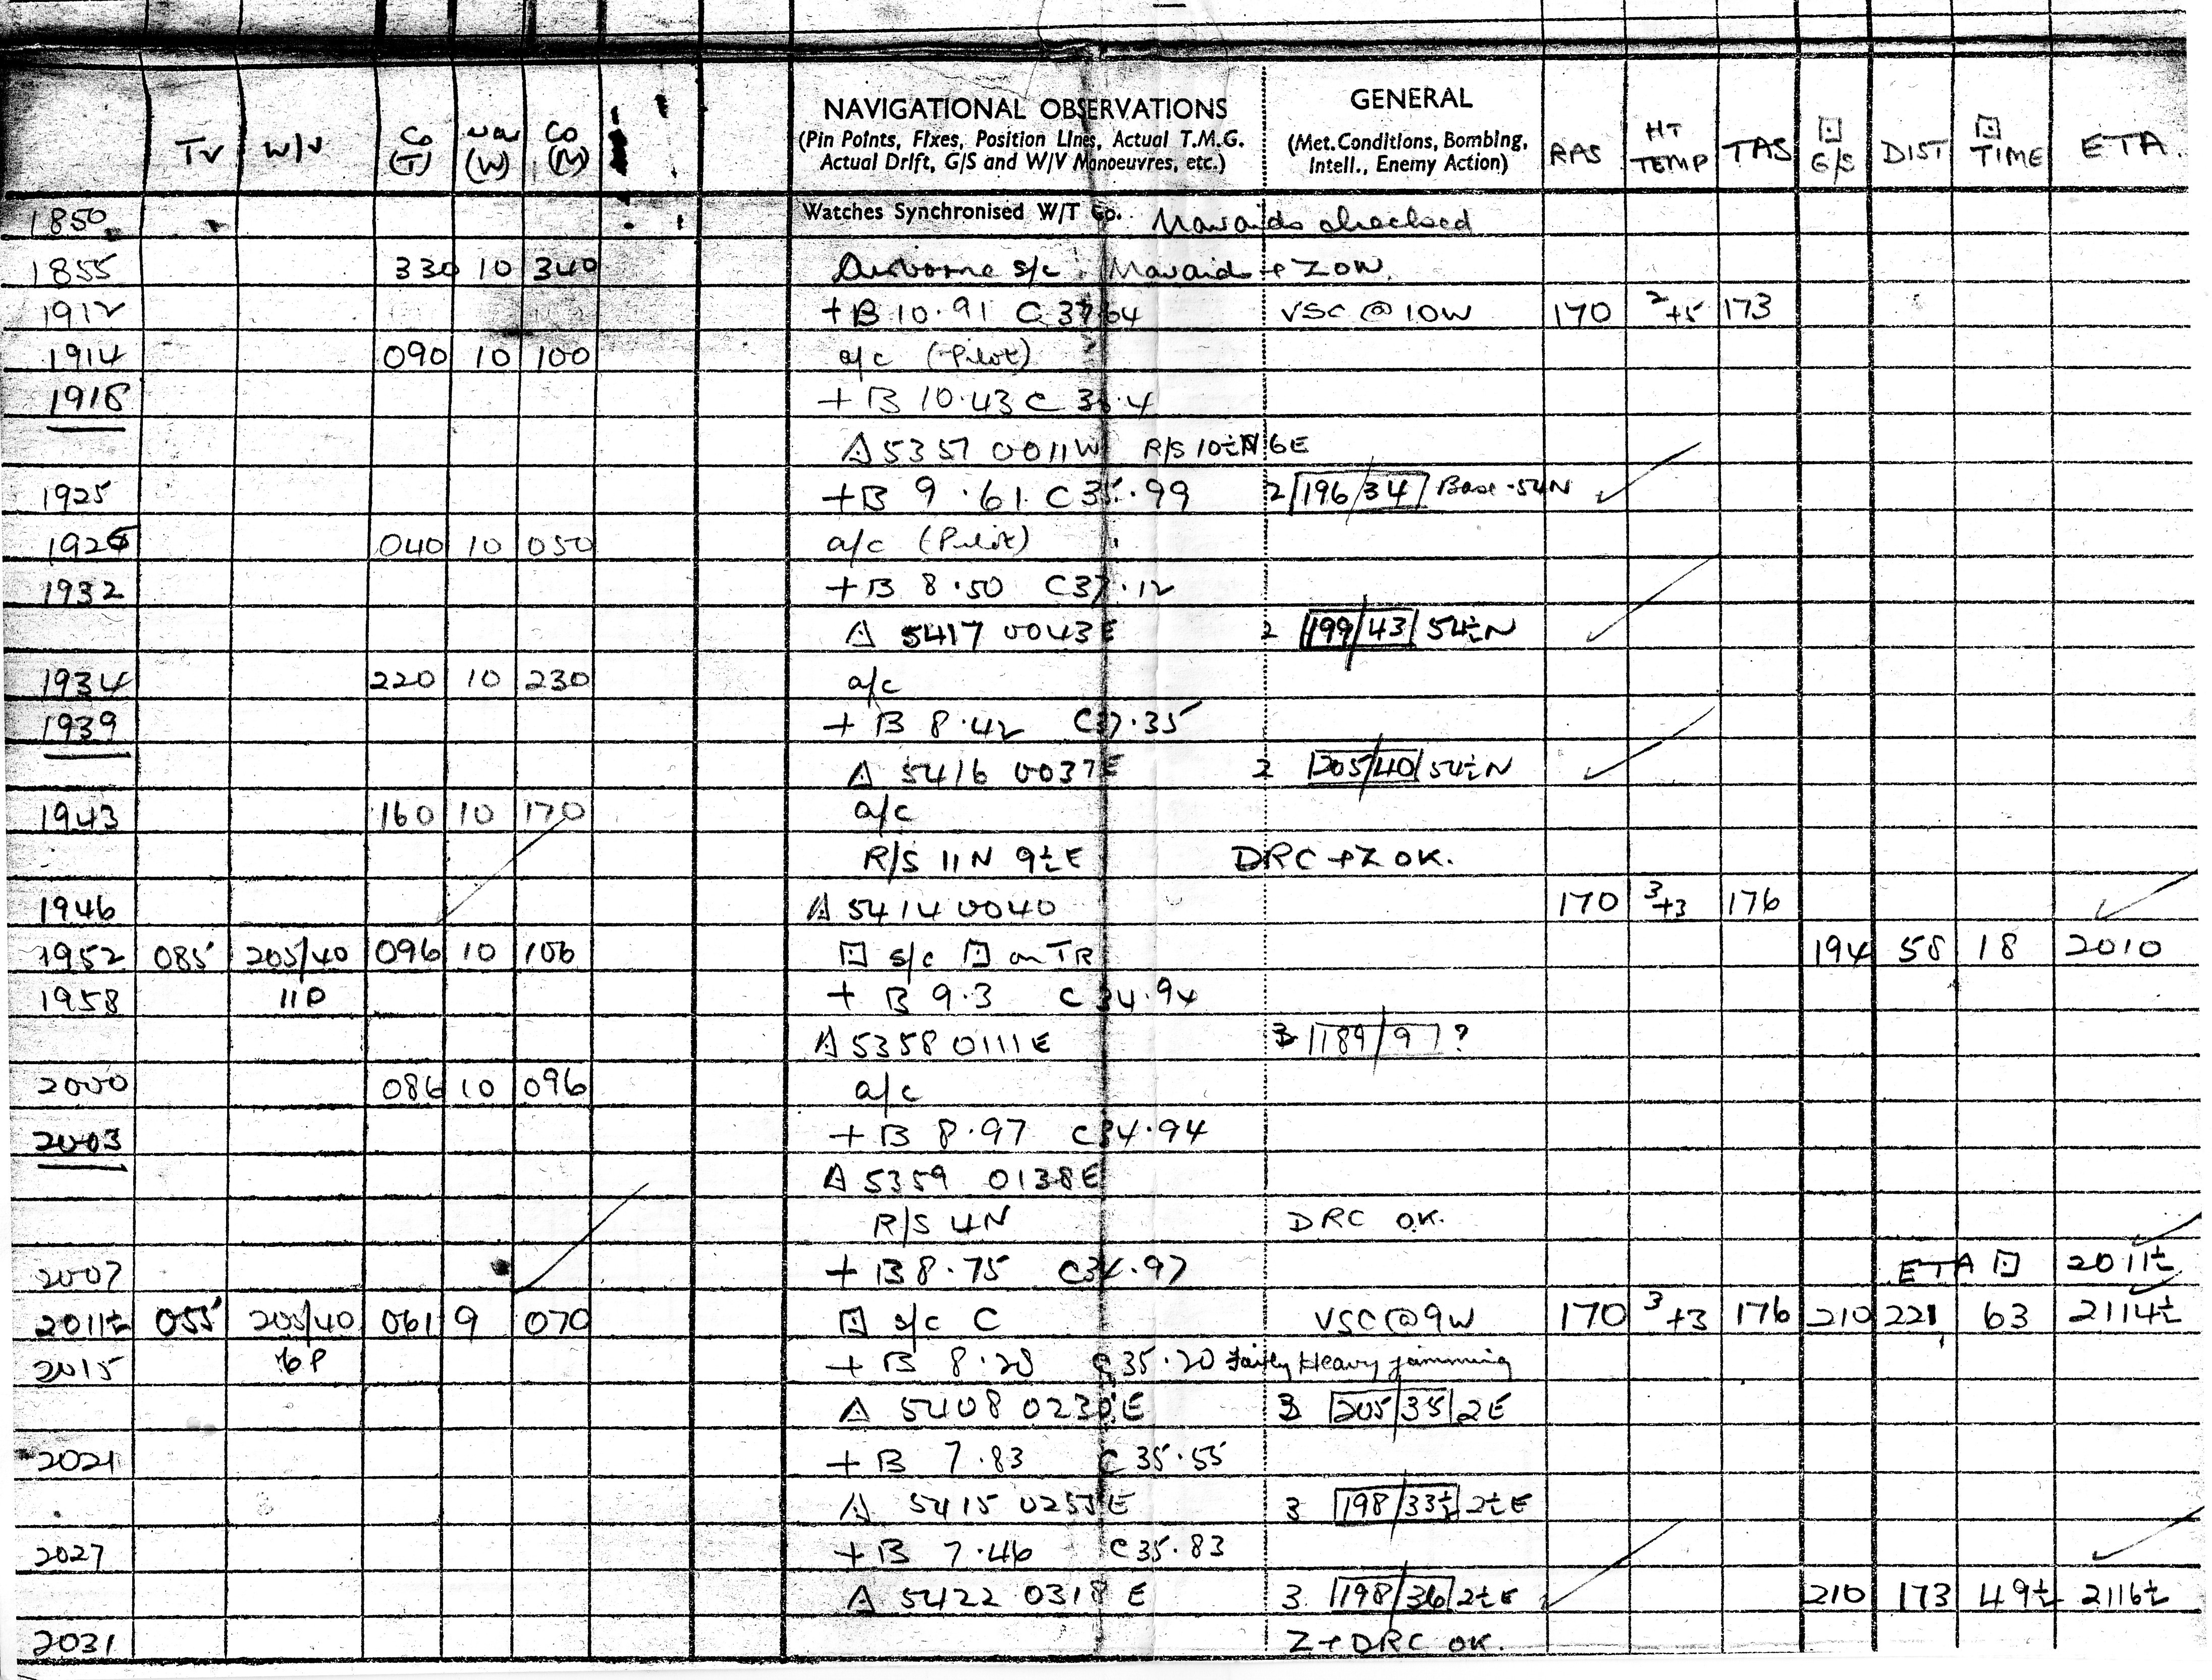 Tr W/V Co (T) Var (W) Co (M) NAVIGATIONAL OBSERVATIONS GENERAL RAS HT TEMP TAS G/S DIST TIME ETA
(Pin Points, Fixes, Position Lines, Actual T.M.G. (Met. Conditions, Bombing,
Actual Drift, G/S and W/V Manoeuvres, etc.) Intell., Enemy Action)
1850 Watches Synchronised W/T Op. Navaids checked
1855 330 10 340 Airborne s/c Navaids + Z OK.
1912 + B 10.91 C 37.64 VSC @ 10W 170 2 +5 173
1914 090 10 100 a/c (Pilot)
1918 + B 10.43 C 36.4
△ 5357 0011W R/S 10½N 6E
1925 + B 9.61 C 35.99 2 196/34 Base - 54N
1926 040 10 050 a/c (Pilot)
1932 + B 8.50 C 37.12
△ 5417 0043E 2 199/43 54½N
1934 220 10 230 a/c
1939 + B 8.42 C 37.35
△ 5416 0037E 2 205/40 54½N
1943 160 10 170 a/c
R/S 11N 9½E DRC + Z OK.
1946 △ 5414 0040 170 3 +3 176
1952 085 205/40 096 10 106 ⊡ s/c ⊡ on TR 194 58 18 2010
1958 11P + B 9.3 C 34.94
△ 5358 0111E 3 189/97?
2000 086 10 096 a/c
2003 + B 8.97 C 34.94
△ 5359 0138E
R/S 4N DRC OK.
2007 + B 8.75 C 34.97 ETA ⊡ 2011½
2011½ 055 205/40 061 9 070 ⊡ s/c C VSC @ 9W 170 3 +3 176 210 221 63 2114½
2015 6P + B 8.28 C 35.20 Fairly Heavy jamming
△ 5408 0230E 3 205/35 2E
2021 + B 7.83 C 35.55
△ 5415 0255E 3 198/33½ 2½E
2027 + B 7.46 C 35.83
△ 5422 0318E 3 198/36 2½E 210 173 49½ 2116½
2031 Z + DRC OK.